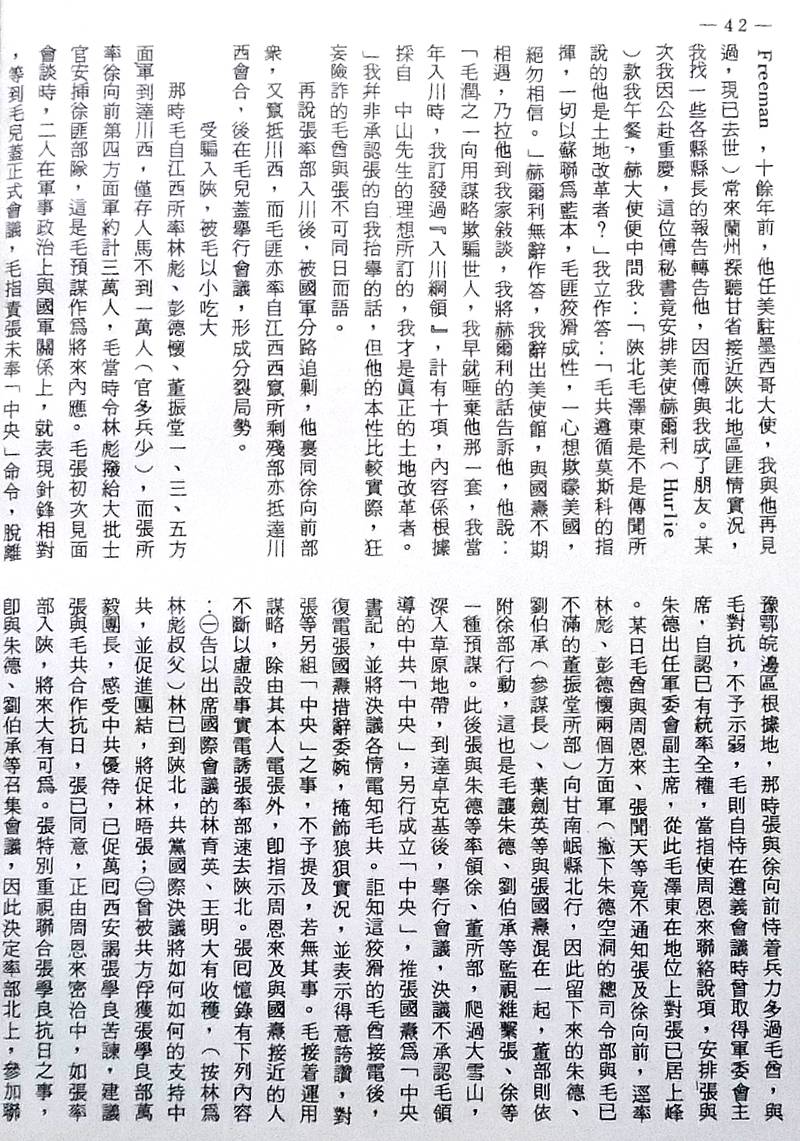 — 42 —
Freeman ,十餘年前,他任美駐墨西哥大使,我與他再見
過,現已去世)常來蘭州探聽甘省接近陝北地區匪情實況,
我找一些各縣縣長的報告轉告他,因而傅與我成了朋友。某
次我因公赴重慶,這位傅秘書竟安排美使赫爾利(Hurlie
)款我午餐,赫大使便中問我:「陝北毛澤東是不是傳聞所
說的他是土地改革者?」我立作答:「毛共遵循莫斯科的指
揮,一切以蘇聯爲藍本,毛匪狡猾成性,一心想欺矇美國,
絕勿相信。」赫爾利無辭作答,我辭出美使館,與國燾不期
相遇,乃拉他到我家敍談,我將赫爾利的話告訴他,他說:
「毛潤之一向用謀略欺騙世人,我早就唾棄他那一套,我當
年入川時,我訂發過『入川綱領』,計有十項,內容係根據
採自 中山先生的理想所訂的,我才是眞正的土地改革者。
」我幷非承認張的自我抬舉的話,但他的本性比較實際,狂
妄險詐的毛酋與張不可同日而語。
再說張率部入川後,被國軍分路追剿,他裹同徐向前部
衆,又竄抵川西,而毛匪亦率自江西西竄所剩殘部亦抵達川
西會合,後在毛兒蓋舉行會議,形成分裂局勢。
受騙入陝,被毛以小吃大
那時毛自江西所率林彪、彭德懷、董振堂一、三、五方
面軍到達川西,僅存人馬不到一萬人(官多兵少),而張所
率徐向前第四方面軍約計三萬人,毛當時令林彪撥給大批士
官安揷徐匪部隊,這是毛預謀作爲將來內應。毛張初次見面
會談時,二人在軍事政治上與國軍關係上,就表現針鋒相對
,等到毛兒蓋正式會議,毛指責張未奉「中央」命令,脫離
豫鄂皖邊區根據地,那時張與徐向前恃着兵力多過毛酋,與
毛對抗,不予示弱,毛則自恃在遵義會議時曾取得軍委會主
席,自認已有統率全權,當指使周恩來聯絡說項,安排張與
朱德出任軍委會副主席,從此毛澤東在地位上對張已居上峰
。某日毛酋與周恩來、張聞天等竟不通知張及徐向前,逕率
林彪、彭德懷兩個方面軍(撇下朱德空洞的總司令部與毛已
不滿的董振堂所部)向甘南岷縣北行,因此留下來的朱德、
劉伯承(參謀長)、葉劍英等與張國燾混在一起,董部則依
附徐部行動,這也是毛讓朱德、劉伯承等監視維繫張、徐等
一種預謀。此後張與朱德等率領徐、董所部,爬過大雪山,
深入草原地帶,到達卓克基後,舉行會議,決議不承認毛領
導的中共「中央」,另行成立「中央」,推張國燾爲「中央
書記,並將決議各情電知毛共。詎知這狡猾的毛酋接電後,
復電張國燾措辭委婉,掩飾狼狽實況,並表示得意誇讚,對
張等另組「中央」之事,不予提及,若無其事。毛接着運用
謀略,除由其本人電張外,卽指示周恩來及與國燾接近的人
不斷以虛設事實電誘張率部速去陝北。張囘憶錄有下列內容
:㊀告以出席國際會議的林育英、王明大有收穫,(按林爲
林彪叔父)林已到陝北,共黨國際決議將如何如何的支持中
共,並促進團結,將促林晤張;㊁曾被共方俘獲張學良部萬
毅團長,感受中共優待,已促萬囘西安謁張學良苦諫,建議
張與毛共合作抗日,張已同意,正由周恩來密洽中,如張率
部入陝,將來大有可爲。張特別重視聯合張學良抗日之事,
卽與朱德、劉伯承等召集會議,因此決定率部北上,參加聯